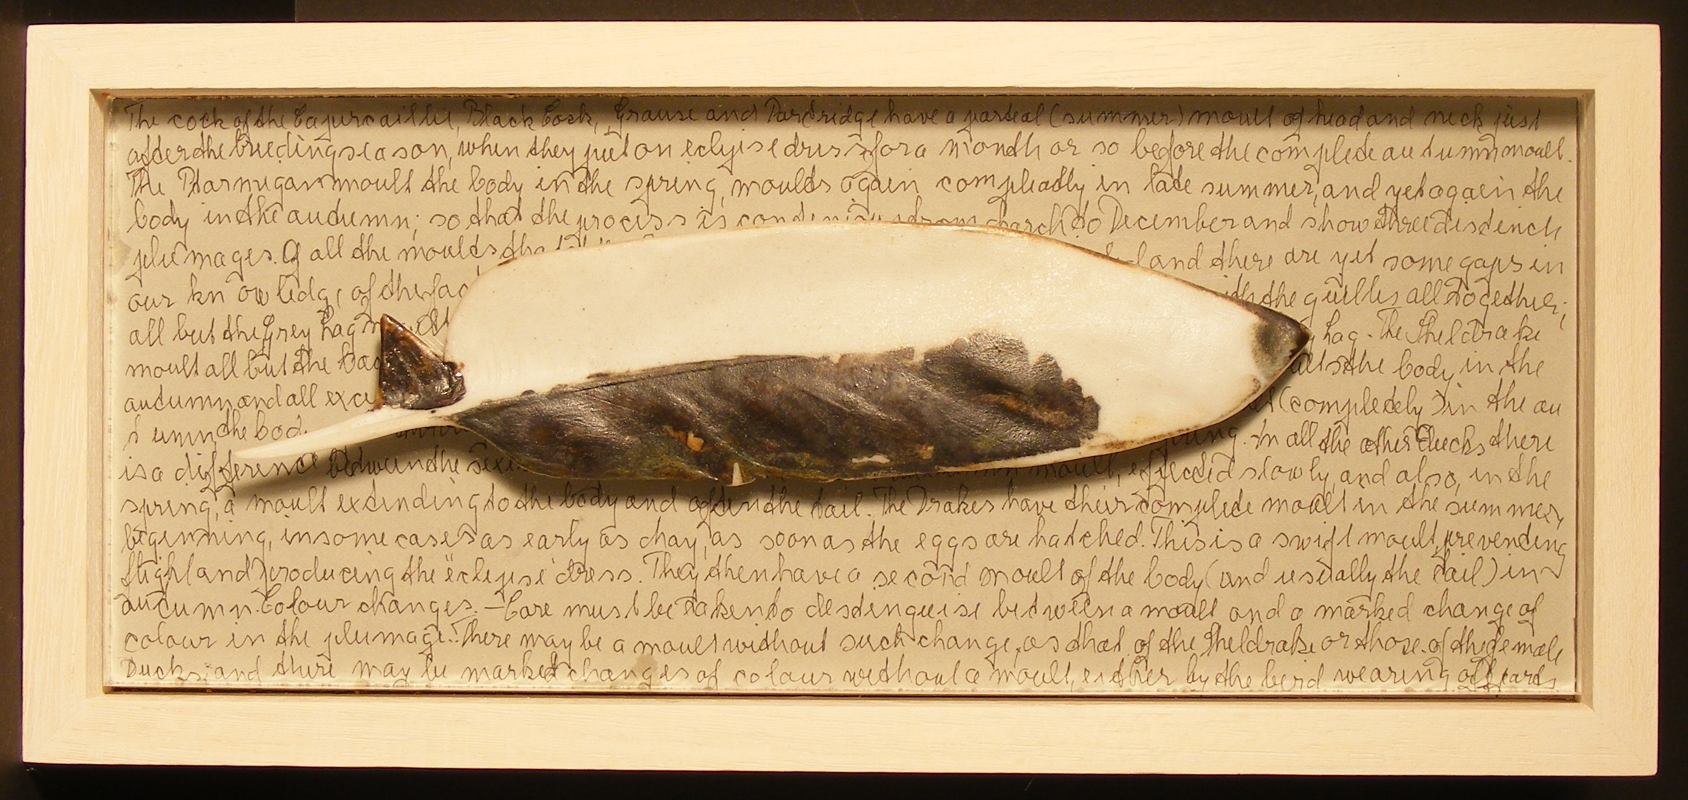 The cock of the Capercaillie, Black Cock, Grouse and Partridge have a partial (summer) moult of head and neck just
after the breeding season, when they put on eclipse dress for a month or so before the complete autumn moult.
The Ptarmigan moult the body in the spring, moults again completely in late summer, and yet again in the
body in the autumn; so that the process is from March to December and show three distinct
plumages. Of all the moults and there are yet some gaps in
our knowledge of the the quills all together;
all but the Grey Lag hag. The Sheldrake
moult all but the the body in the
autumn and all (completely) in the au
the body young. In all the other Ducks there
is a difference between the moult, effected slowly and also, in the
spring, a moult extending to the body and often the tail. The Drakes have their complete moult in the summer,
beginning, in some cases as early as May, as soon as the eggs are hatched. This is a swift moult, preventing
flight and producing the "eclipse" dress. They then have a second moult of the body (and usually the tail) in
autumn. Colour changes. — Care must be taken to distinguish between a moult and a marked change of
colour in the plumage. There may be a moult without such change, as that of the Sheldrake or those of the female
Ducks; and there may be marked changes of colour without a moult, either by the bird wearing off